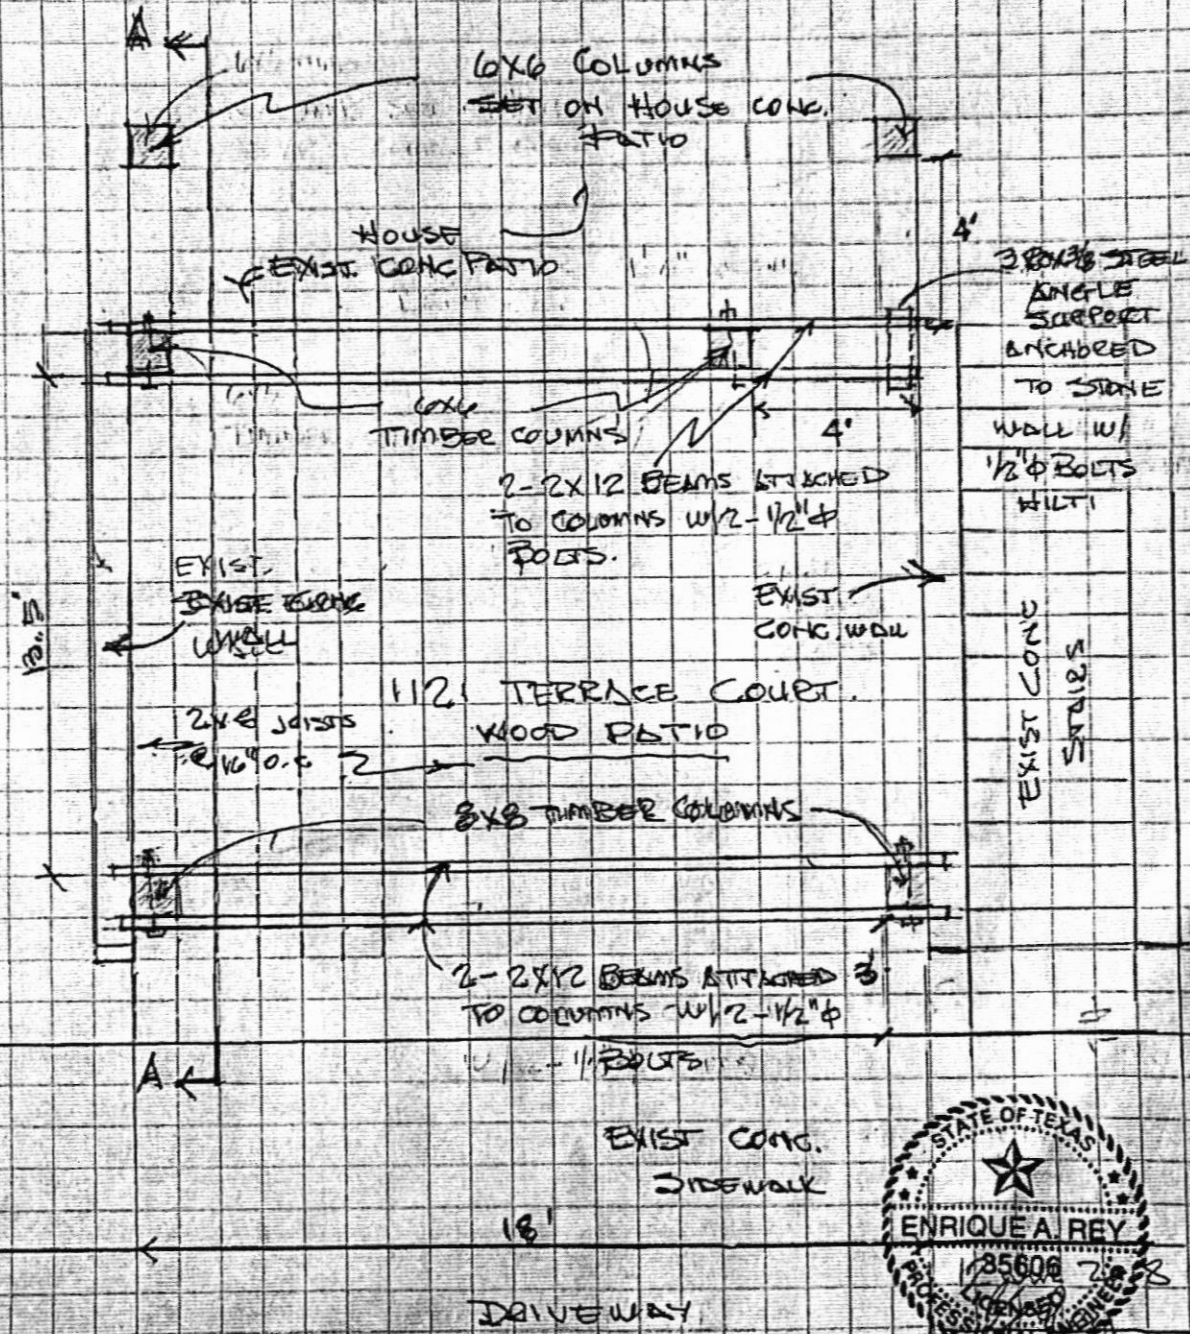 A
6X6 COLUMNS
SET ON HOUSE CONC.
PATIO
HOUSE
EXIST. CONC PATIO
4'
STEEL
ANGLE
SUPPORT
ANCHORED
TO STONE
WALL W/
1/2"φ BOLTS
HILTI
6X6
TIMBER COLUMNS
4'
2-2X12 BEAMS ATTACHED
TO COLUMNS W/2-1/2"φ
BOLTS.
EXIST.
WALL
EXIST.
CONC. WALL
EXIST CONC
STAIRS
1121 TERRACE COURT.
WOOD PATIO
2X8 JOISTS
@ 16" O.C
8X8 TIMBER COLUMNS
2-2X12 BEAMS ATTACHED
3'
TO COLUMNS W/2-1/2"φ
BOLTS
A
EXIST CONC.
SIDEWALK
18'
DRIVEWAY
STATE OF TEXAS
ENRIQUE A. REY
85606
LICENSED
PROFESSIONAL ENGINEER